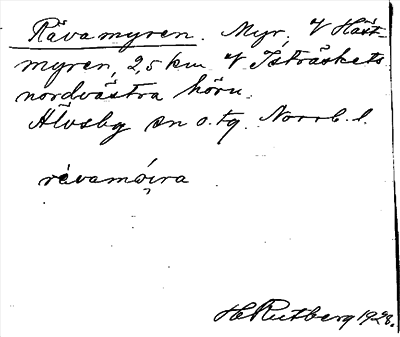 Rävamyren. Myr, V Häst-
myren, 2,5 km V Isträskets
nordvästra hörn.
Älvsby sn o. tg. Norrb. l.
rävamýra
H Rutberg 1928.